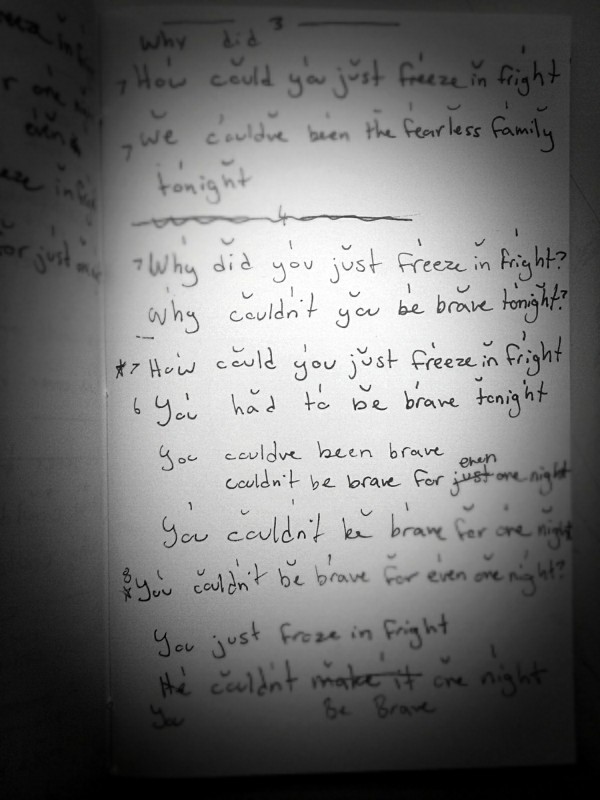 3
Why did
7 How could you just freeze in fright
7 We couldve been the fearless family
tonight
4
7 Why did you just freeze in fright?
Why couldn't you be brave tonight?
*7 How could you just freeze in fright
6 You had to be brave tonight
You couldve been brave
even
couldn't be brave for just one night
You couldn't be brave for one night
8
* You couldn't be brave for even one night?
You just froze in fright
He couldn't make it one night
You Be Brave